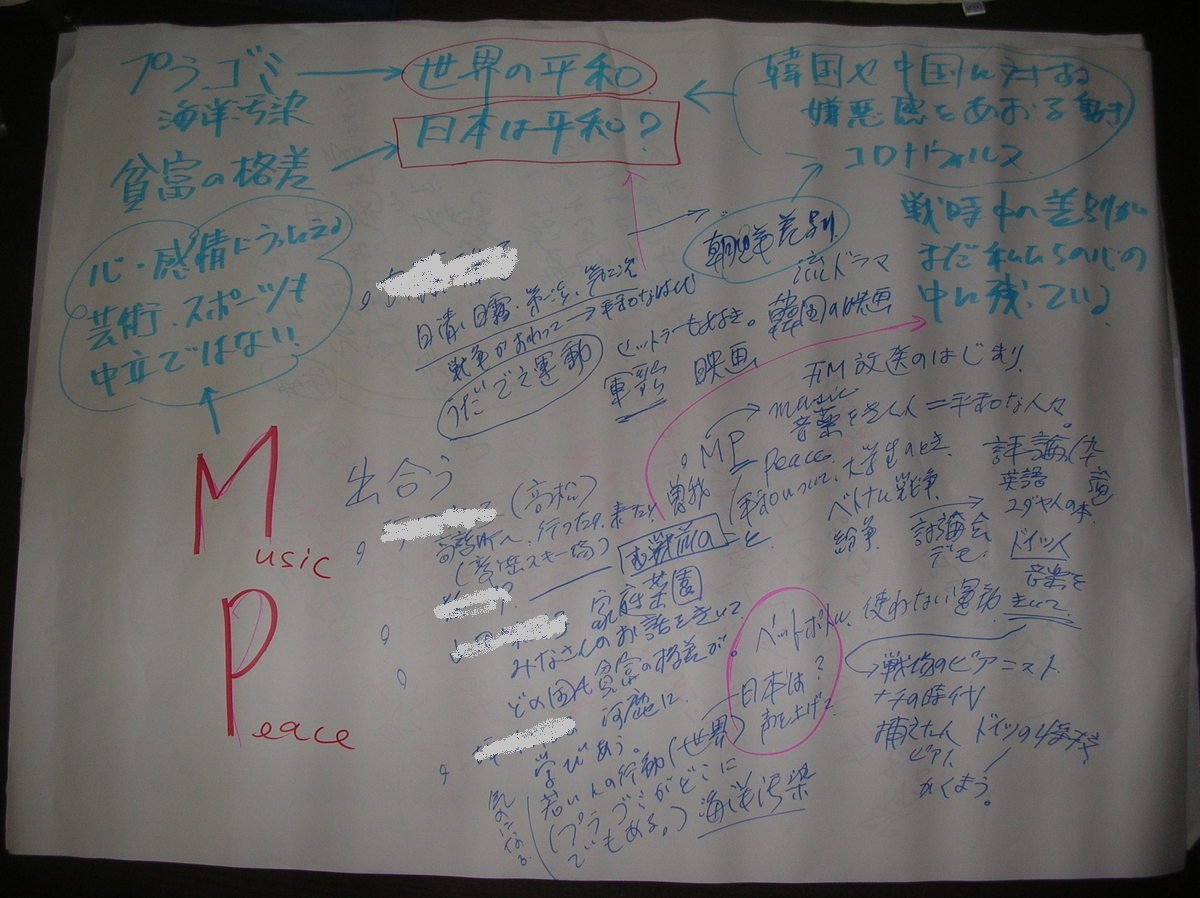 プラゴミ
海洋汚染
貧富の格差
世界の平和
日本は平和?
韓国や中国に対する
嫌悪感をあおる動き
コロナウィルス
戦時中の差別が
まだ私たちの心の
中に残っている
心・感情にうったえる
芸術、スポーツも
中立ではない!
朝鮮差別
流ドラマ
日清、日露、第一次、第二次
戦争がおわって
うたごえ運動
軍
映画
韓国の映画
FM放送のはじまり
MP
music
peace
音楽をきく人=平和な人々。
平和について、大学生のとき、
ベトナム戦争、
紛争
討論会
デモ
英語
ユダヤ人の本、
ドイツ人
音楽を
きいて
出合う
(高松)
行ったり、来たり
スキー場)
曽我
家庭菜園
みなさんのお話をきいて
どの国も貧富の格差が。
学びあう。
若い人の行動(世界)
(プラゴミがどこに
でもある。)
海洋汚染
気になる。
ペットボトル
使わない運動
日本は?
声を上げて
戦場のピアニスト
ナチの時代
捕えた人
ピアノ
ドイツの将校
かくまう。
Music
Peace